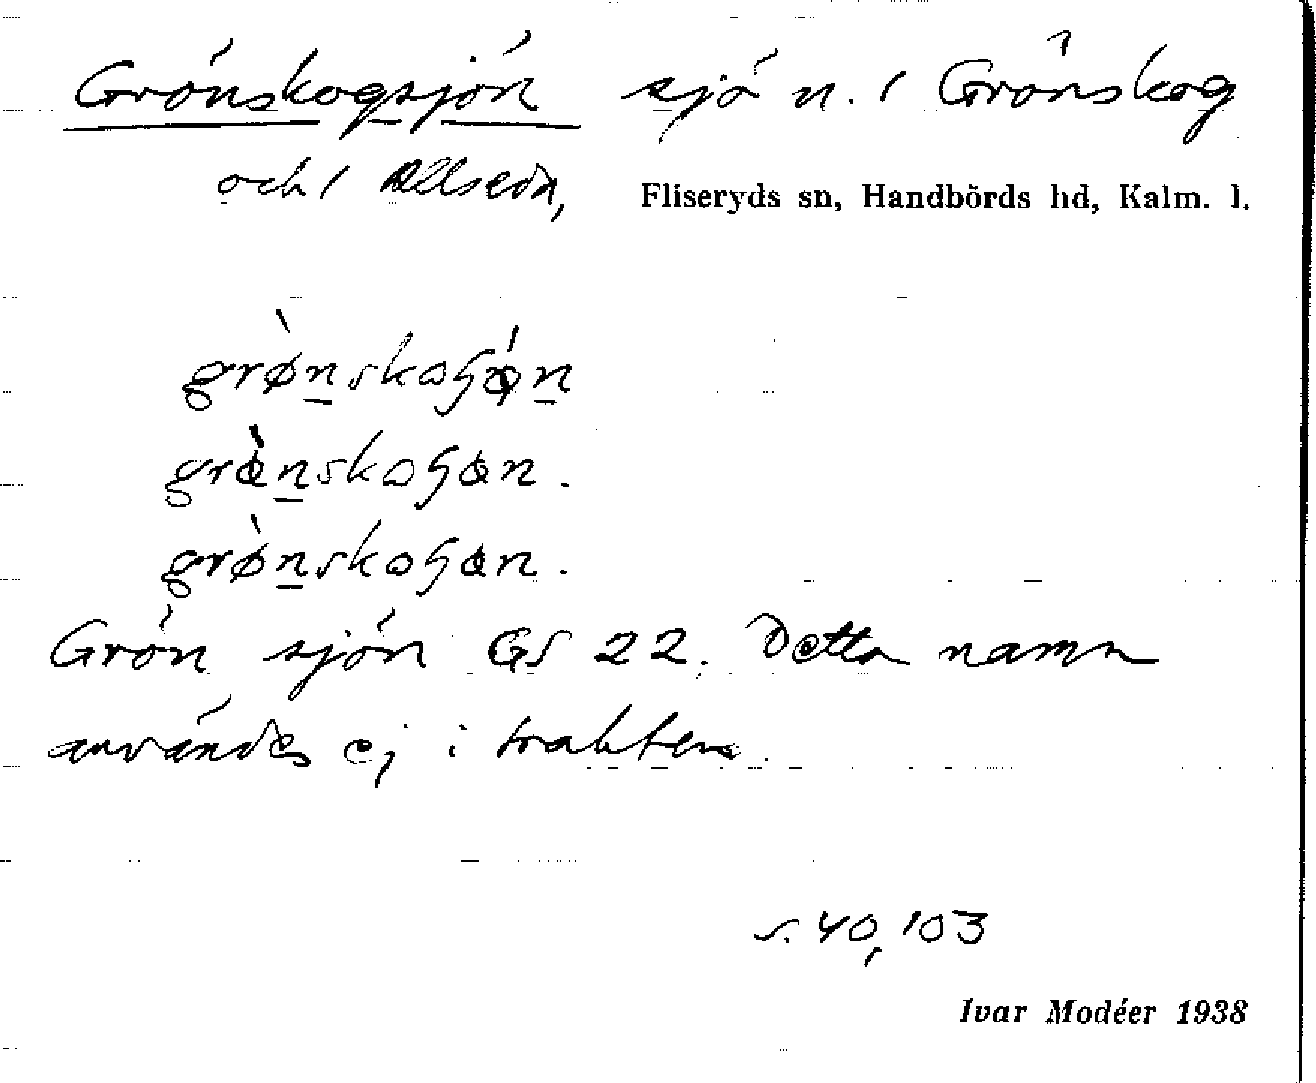 Grönskogsjön sjö n. / Grönskog
och / Allseda,
Fliseryds sn, Handbörds hd, Kalm. l.
grø̀nskoɧǿn
grø̀nskoɧøn.
grø̀nskoɧøn.
Grön sjön GS 22. Detta namn
användes ej i trakten.
s. 40, 103
Ivar Modéer 1938